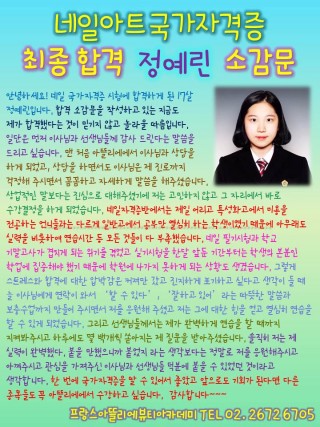 네일아트국가자격증
최종합격 정예린 소감문
안녕하세요! 네일 국가자격증 시험에 합격하게 된 17살
정예린입니다. 합격 소감문을 작성하고 있는 지금도
제가 합격했다는 것이 믿기지 않고 놀라울 따름입니다.
일단은 먼저 이사님과 선생님들께 감사 드린다는 말씀을
드리고 싶습니다. 맨 처음 아뜰리에에서 이사님과 상담을
하게 되었고, 상담을 하면서도 이사님은 제 진로까지
걱정해 주시면서 꼼꼼하고 자세하게 말씀을 해주셨습니다.
상업적인 말보다는 진심으로 대해주셨기에 저는 고민하지 않고 그 자리에서 바로
수강결정을 하게 되었습니다. 네일자격증반에서는 제일 어리고 특성화고에서 미용을
전공하는 언니들과는 다르게 일반고에서 공부만 열심히 하는 학생이었기 때문에 아무래도
실력을 비롯하여 연습시간 등 모든 것들이 다 부족했습니다. 네일 필기시험과 학교
기말고사가 겹치게 되는 위기를 겪었고 실기시험을 한달 앞둔 기간부터는 학생의 본분인
학업에 집중해야 했기 때문에 학원에 나가지 못하게 되는 상황도 생겼습니다. 그렇게
스트레스와 합격에 대한 압박감은 커져만 갔고 진지하게 포기하고 싶다고 생각이 들 때
쯤 이사님에게 연락이 와서 '할 수 있다', '잘하고 있어'라는 따뜻한 말씀과
보충수업까지 만들어 주시면서 저를 응원해 주셨고 저는 그에 대한 힘을 얻고 열심히 연습을
할 수 있게 되었습니다. 그리고 선생님들께서는 제가 완벽하게 연습을 할 때까지
지켜봐주시고 하루에도 몇 백개씩 쏟아지는 제 질문을 받아주셨습니다. 솔직히 저는 제
실력이 완벽했다, 붙을 만했으니까 붙었지 라는 생각보다는 정말로 저를 응원해주시고
아껴주시고 관심을 가져주신 이사님과 선생님들 덕분에 붙을 수 있었던 것이라고
생각합니다. 한 번에 국가자격증을 딸 수 있어서 좋았고 앞으로도 기회가 된다면 다른
종목들도 꼭 아뜰리에에서 수강하고 싶습니다. 감사합니다~~~
프랑스아뜰리에뷰티아카데미 TEL 02. 2672 6705